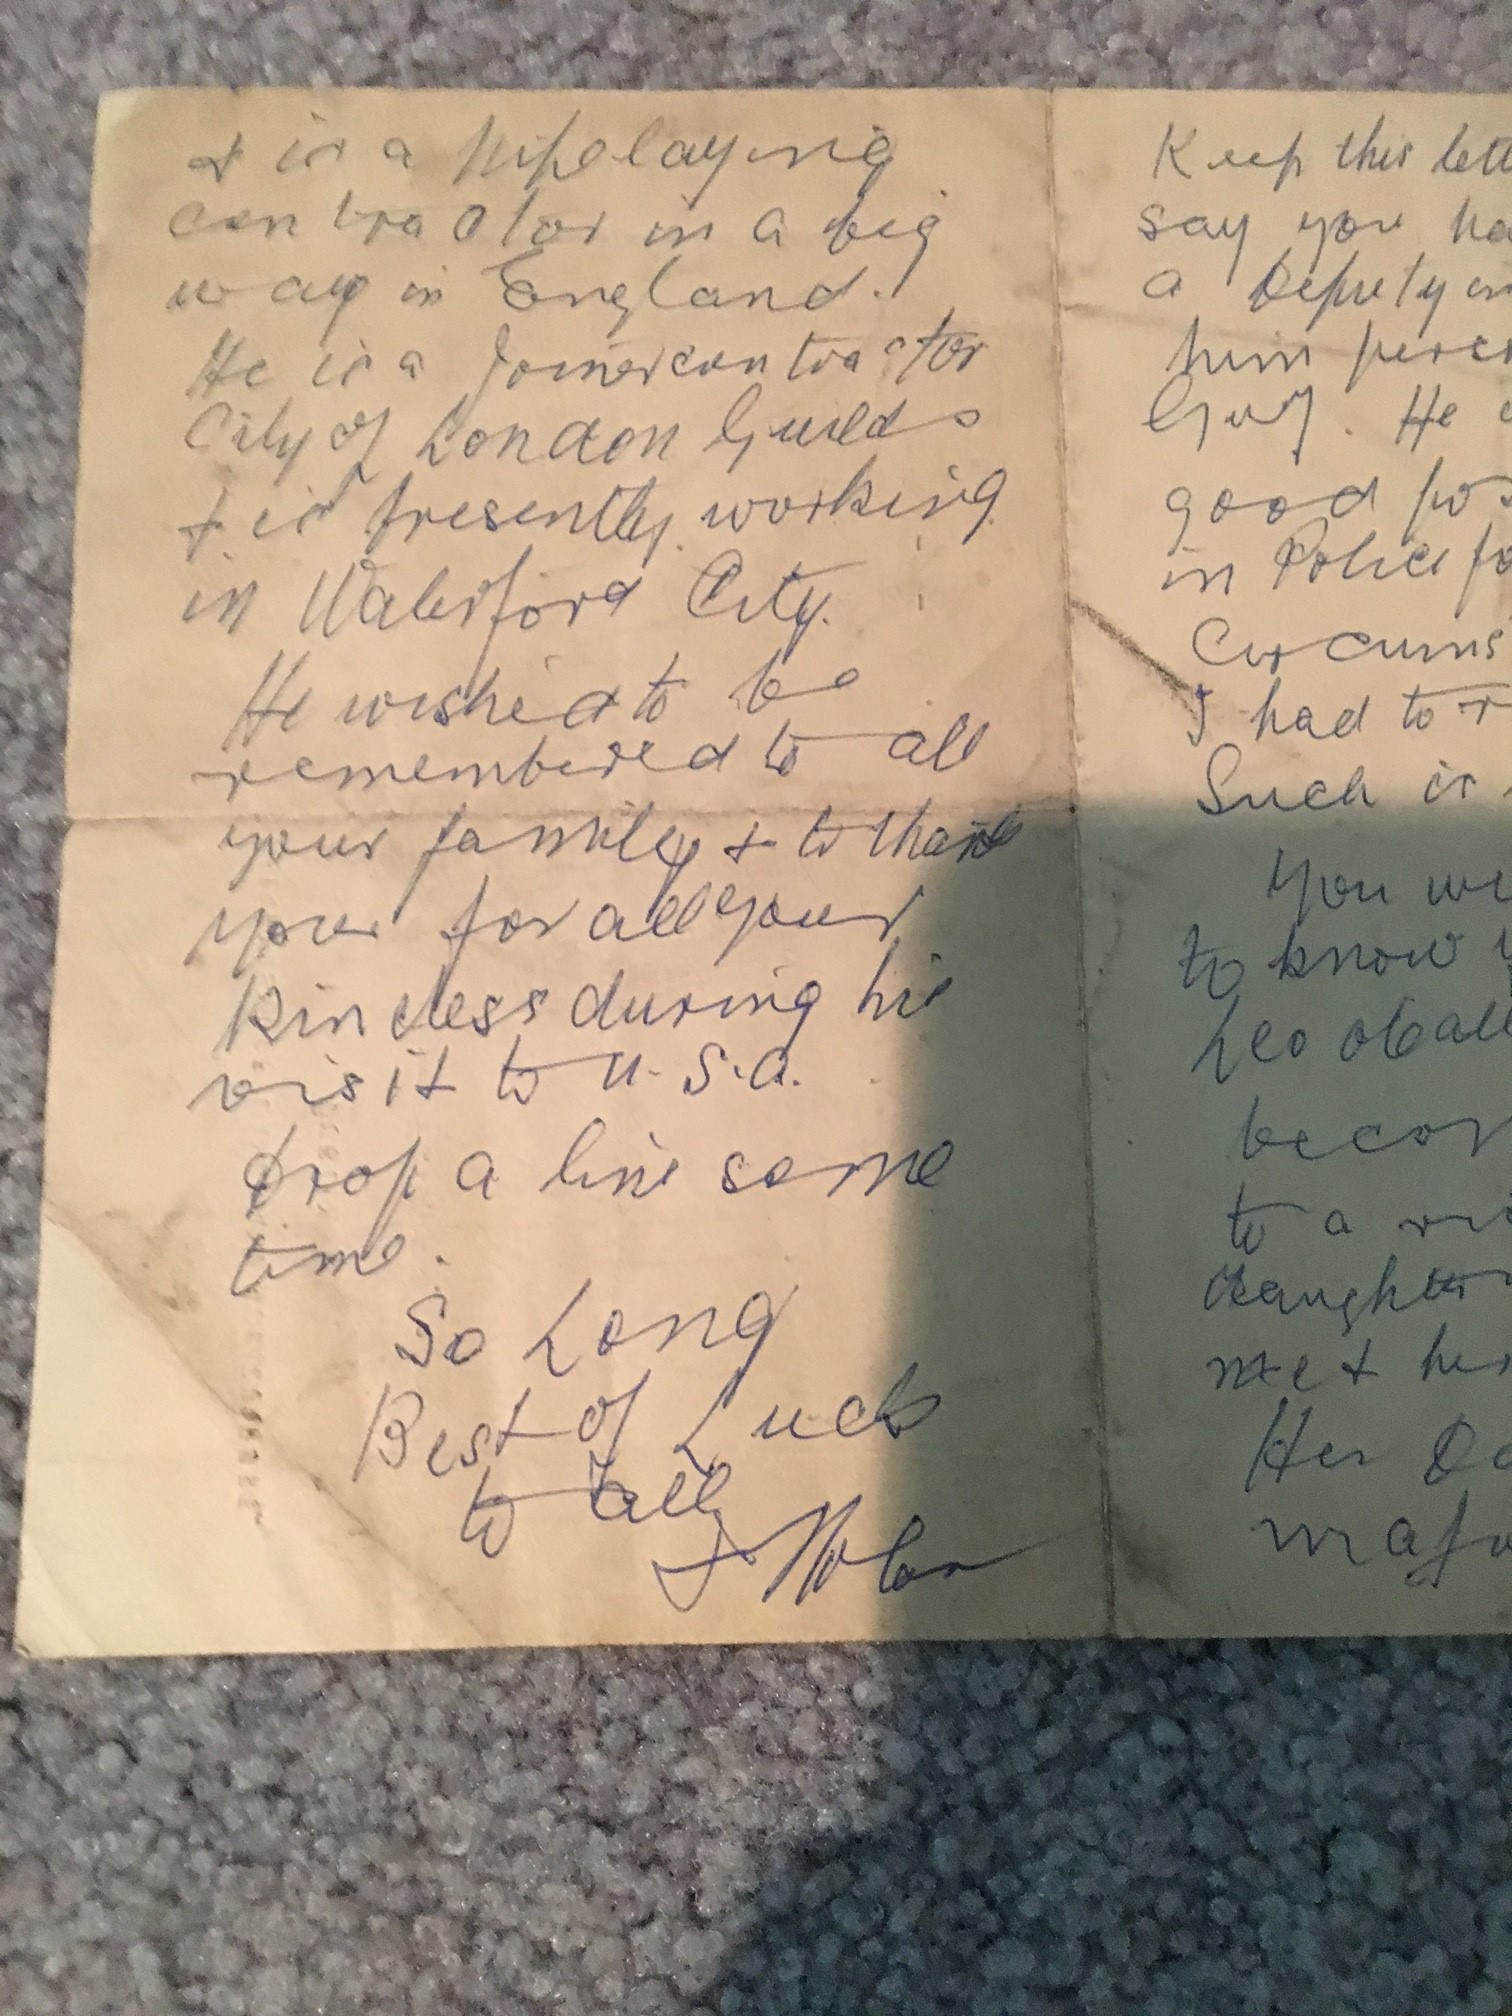 + is a Pipelaying
contractor in a big
way in England.
He is a Joiner contractor
City of London Guilds
+ is presently working
in Waterford City.
He wished to be
remembered to all
your family + to thank
you for all your
kindess during his
visit to U.S.A.
Drop a line some
time.
So Long
Best of Luck
to all
Nolan
Keep this
say you
a Deputy
him
Guy. He
good
in Police
I had to
Such is
You
to know
Leo
to a
daughter
me + her
Her